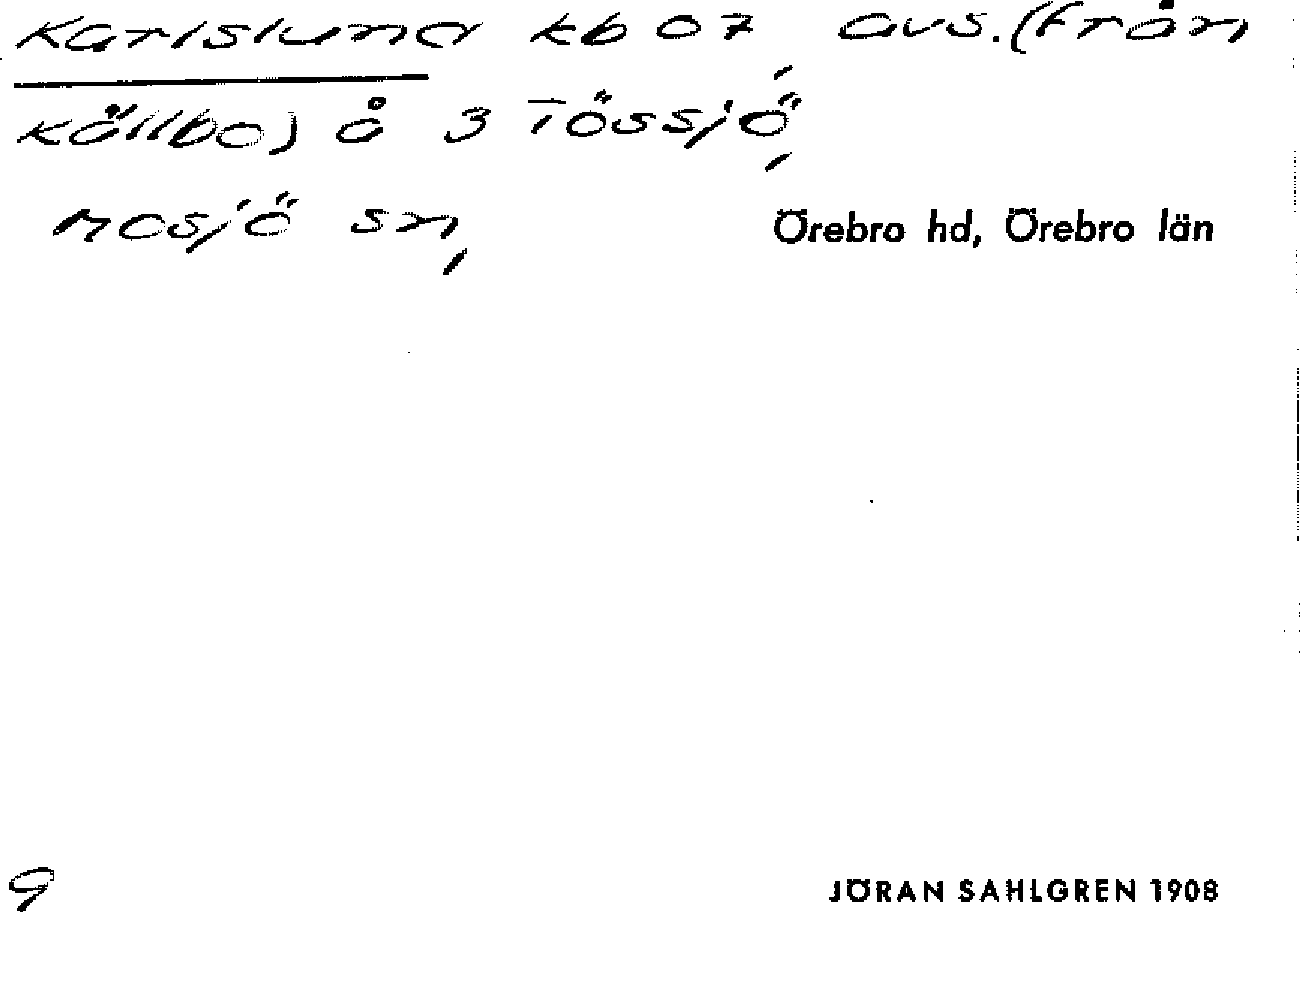 Karlslund kb 07 avs. (från
Källbo) å 3 Tössjö,
Mosjö sn, Örebro hd, Örebro län
9
JÖRAN SAHLGREN 1908